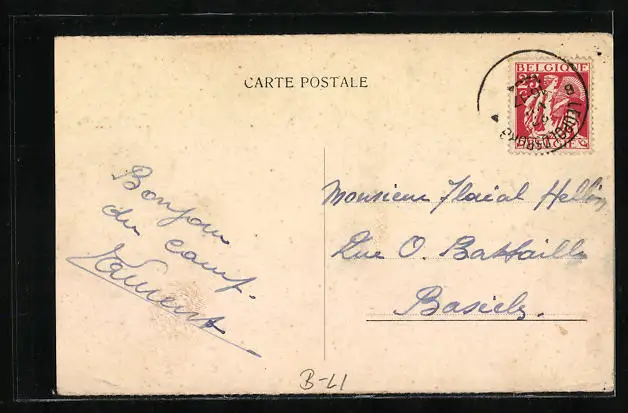 CARTE POSTALE
BELGIQUE
LEOPOLDSBURG
BELGIË
Bonjour
du camp.
Laurent
Monsieur Placial Hellin
Rue O. Battaille
Basècles.
B-L1